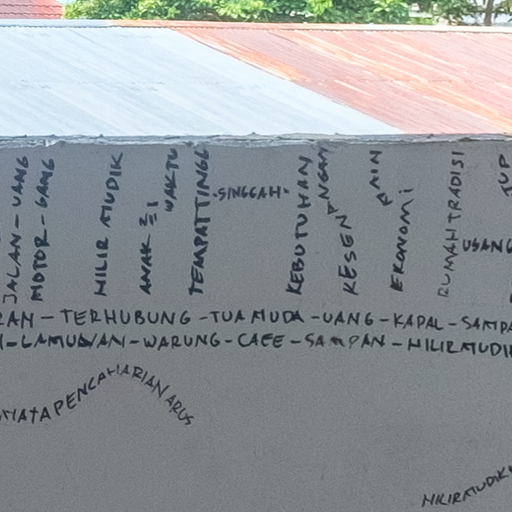 JALAN - UANG
MOTOR - GANG
HILIR MUDIK
ANAK ΞI
WAKTU
TEMPATTINGG
·SINGGAH·
KEBUTUHAN
KESEN
EKONOMI
RUMAHTRADISI
USANG
RAN - TERHUBUNG - TUAMUDA - UANG - KAPAL - SAMPA
- LAMUNAN - WARUNG - CAFE - SAMPAN - HILIRMUDIK
MATAPENCAHARIANARUS
HILIRMUDIK